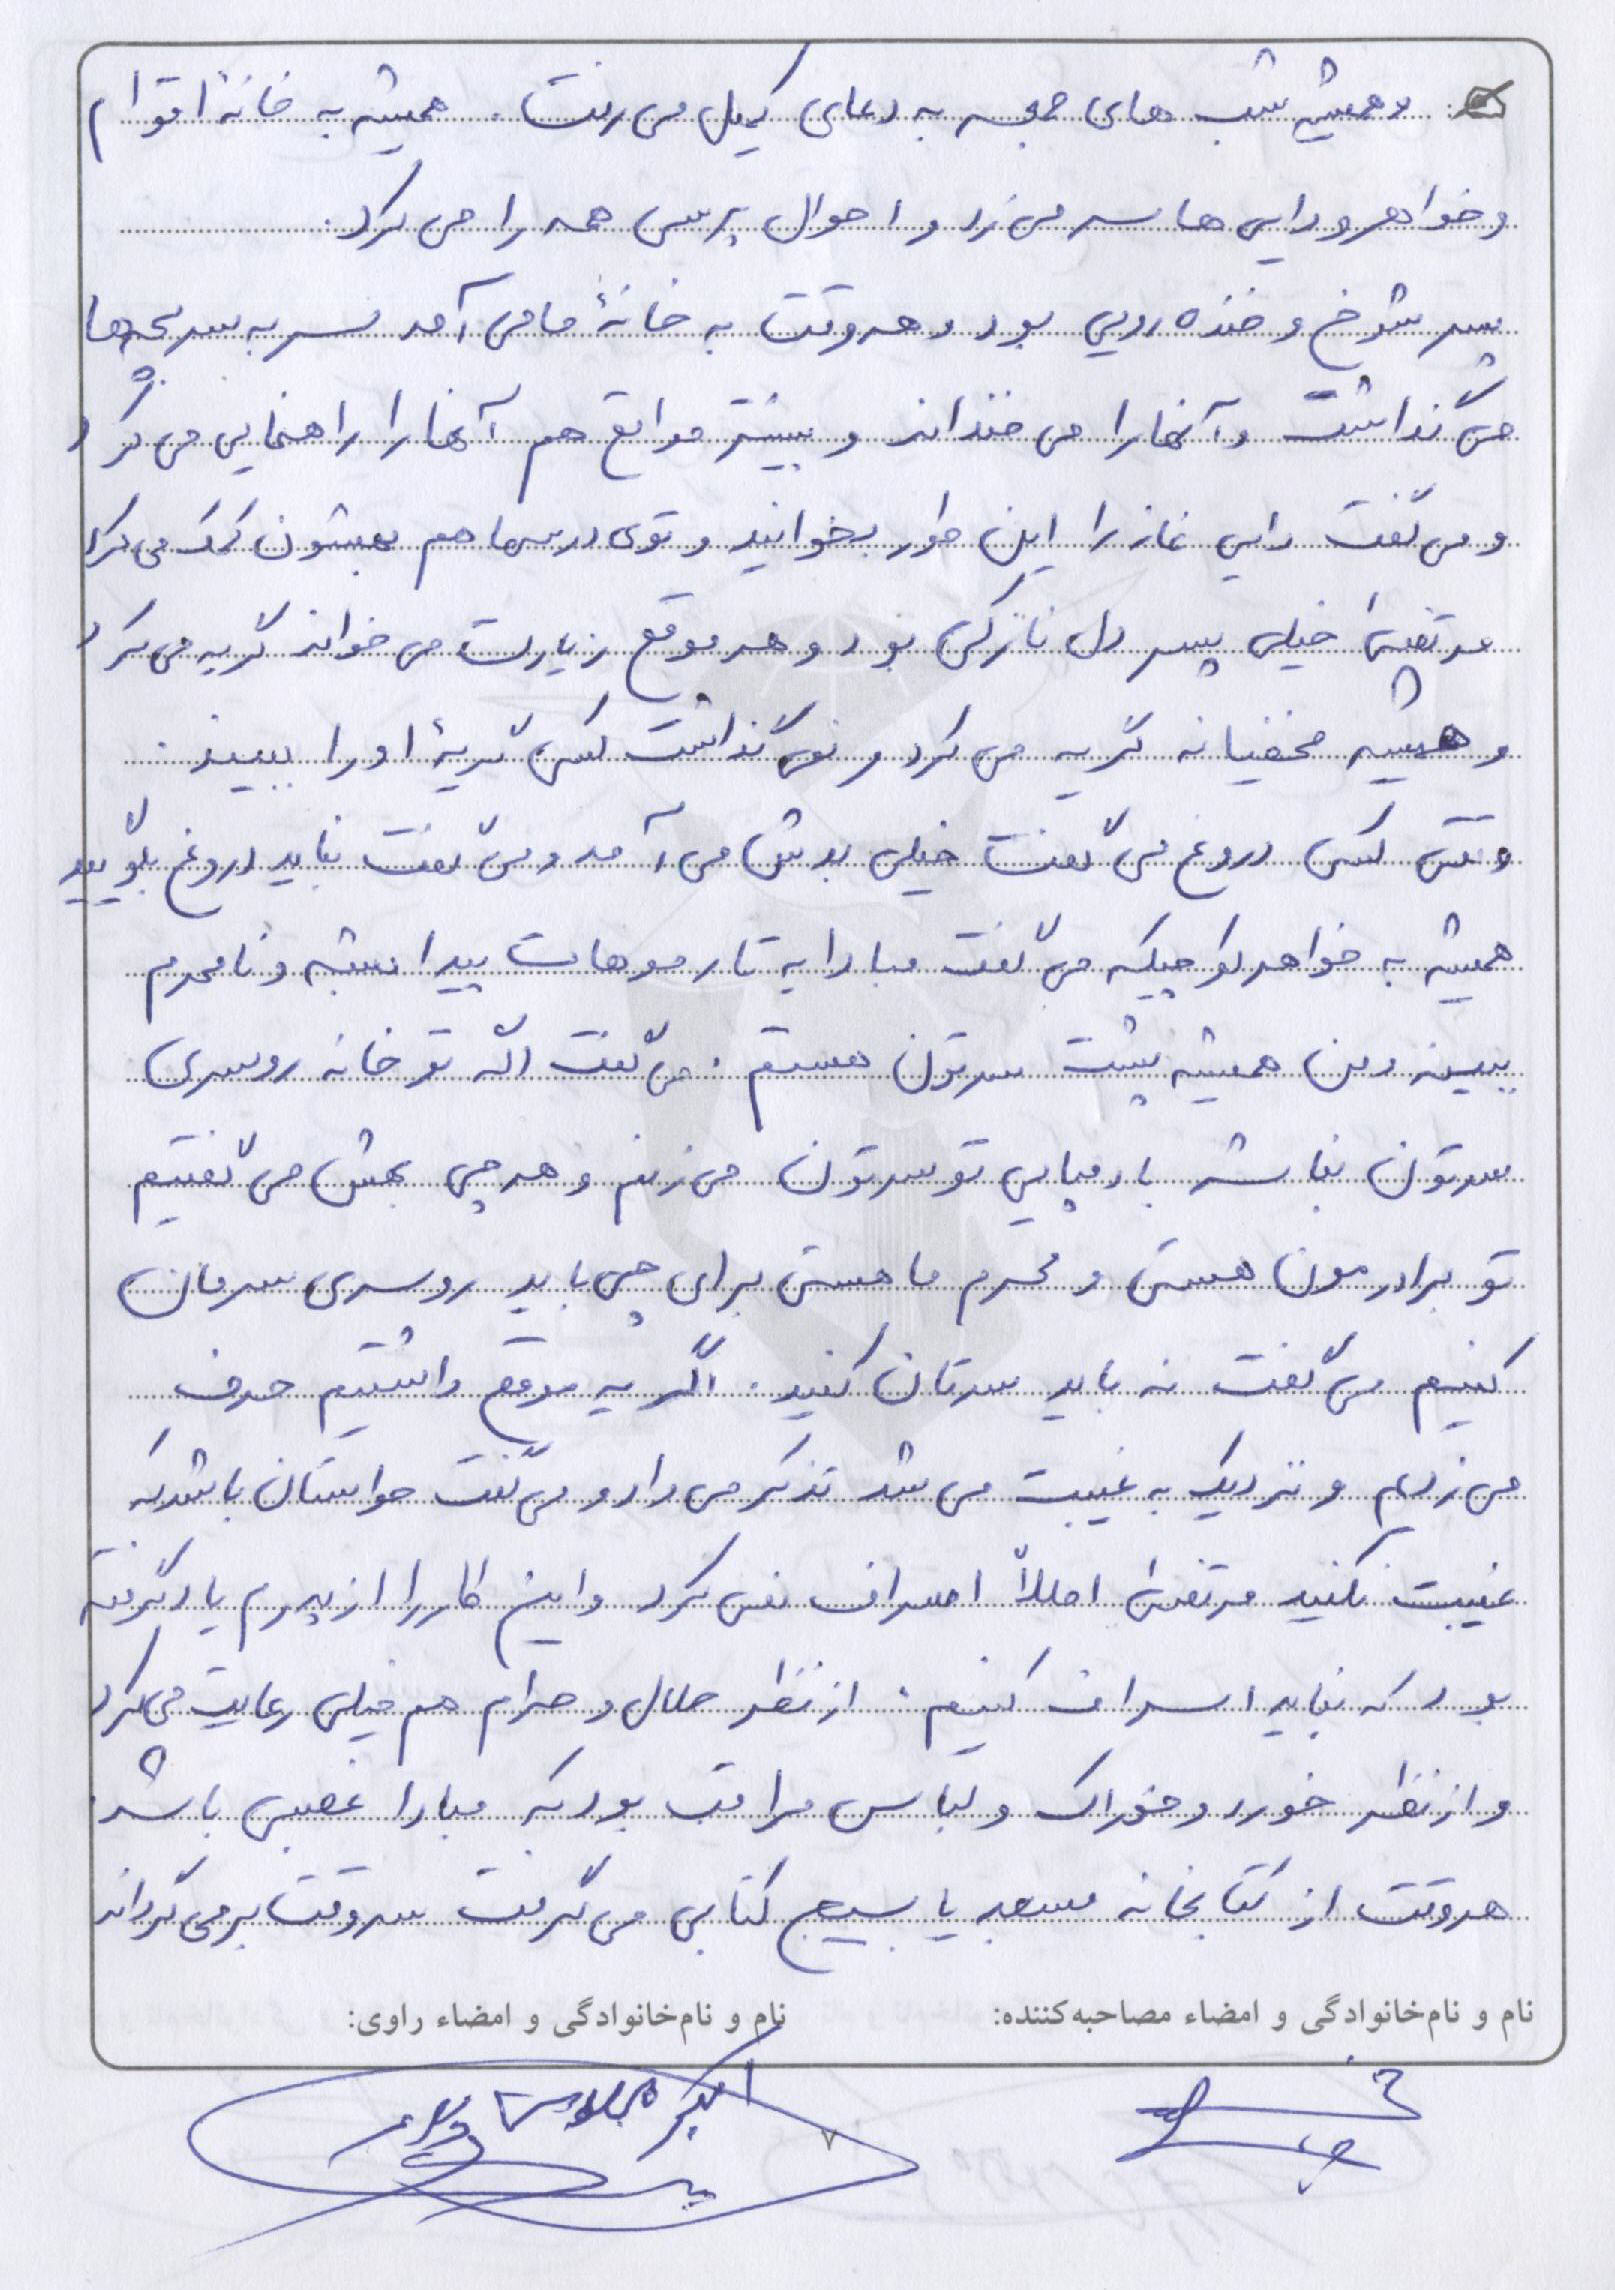 و همیشه شب های جمعه به دعای کمیل می رفت . همیشه به خانهٔ اقوام
و خواهر و دایی ها سر می زد و احوال پرسی همه را می کرد.
پسر شوخ و خنده رویی بود و هر وقت به خانهٔ ما می آمد سر به سر بچه ها
می گذاشت و آنها را می خنداند و بیشتر مواقع هم آنها را راهنمایی می کرد
و می گفت دایی نماز را این طور بخوانید و توی درسها هم بهشون کمک می کرد
مرتضی خیلی پسر دل نازکی بود و هر موقع زیارت می خواند گریه می کرد
و همیشه مخفیانه گریه می کرد و نمی گذاشت کسی گریهٔ او را ببیند .
وقتی کسی دروغ می گفت خیلی بدش می آمد و می گفت نباید دروغ بگویید
همیشه به خواهر کوچیکه می گفت مبادا یه تار موهات پیدا بشه و نامحرم
ببینه و من همیشه پشت سرتون هستم . می گفت اگه تو خانه روسری
سرتون نباشد با دمپایی تو سرتون می زنم و هر چی بهش می گفتیم
تو برادرمون هستی و محرم ما هستی برای چی باید روسری سرمان
کنیم می گفت نه باید سرتان کنید . اگر یه موقع داشتیم حرف
می زدیم و نزدیک به غیبت می شد تذکر می داد و می گفت حواستان باشد که
غیبت نکنید مرتضی اصلاً اسراف نمی کرد و این کار را از پدرم یاد گرفته
بود که نباید اسراف کنیم . از نظر حلال و حرام هم خیلی رعایت می کرد
و از نظر خورد و خوراک و لباس مراقب بود که مبادا غصبی باشد.
هر وقت از کتابخانه مسجد یا بسیج کتابی می گرفت سر وقت برمی گرداند
نام و نام‌خانوادگی و امضاء مصاحبه‌کننده: نام و نام‌خانوادگی و امضاء راوی:
اکبر
۷